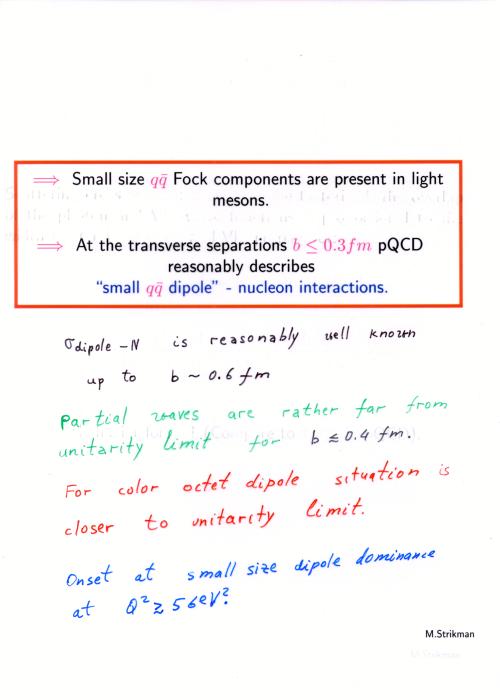 ⟹ Small size qq̄ Fock components are present in light
mesons.
⟹ At the transverse separations b ≤ 0.3fm pQCD
reasonably describes
“small qq̄ dipole” - nucleon interactions.
σdipole-N is reasonably well known
up to b ~ 0.6 fm
Partial waves are rather far from
unitarity limit for b ≤ 0.4 fm.
For color octet dipole situation is
closer to unitarity limit.
Onset at small size dipole dominance
at Q² ≥ 5 GeV².
M.Strikman
M.Strikman